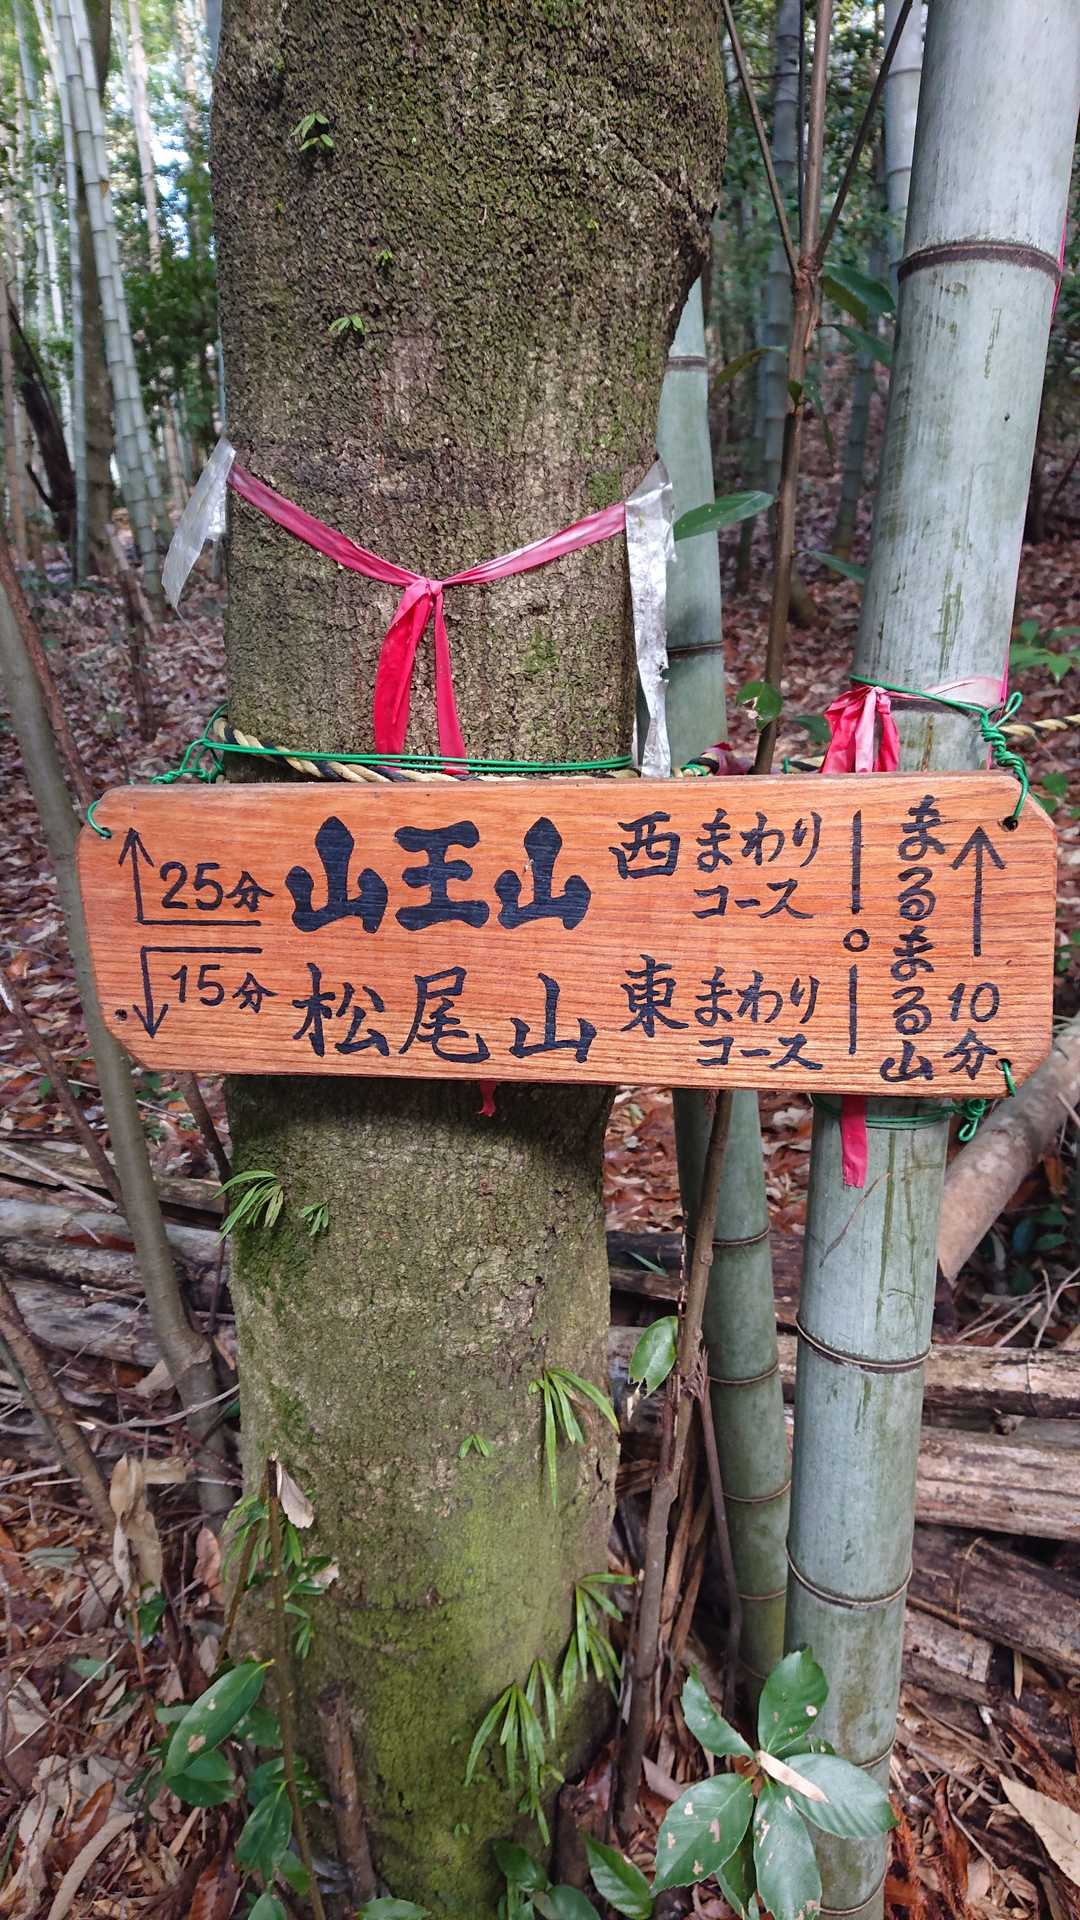 ↑ 25分 山王山 西まわりコース
↓ 15分 松尾山 東まわりコース
まるまる山
↑ 10分